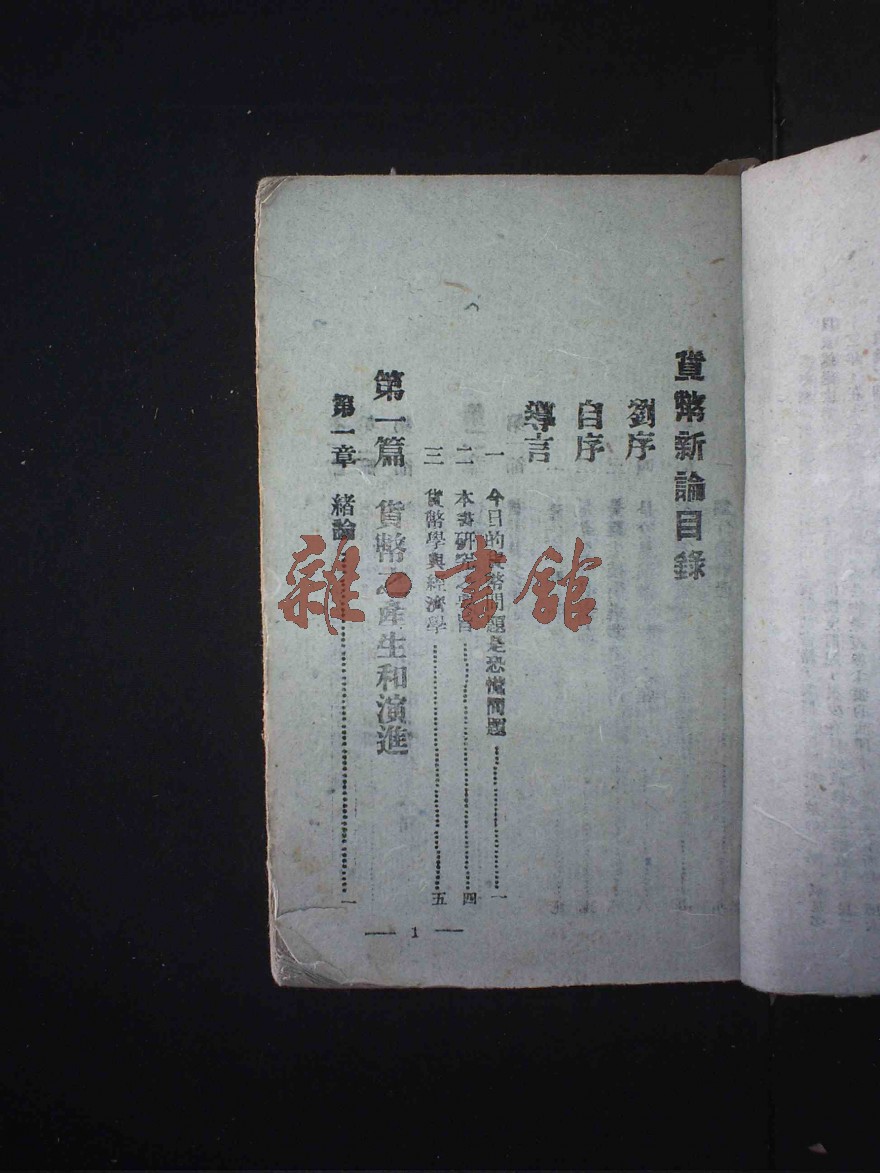 貨幣新論目錄
劉序
自序
導言
一 今日的貨幣問題是恐慌問題……一
二 本書研究之要旨……四
三 貨幣學與經濟學……五
第一篇 貨幣之產生和演進
第一章 緒論……一
— 1 —
雜·書館